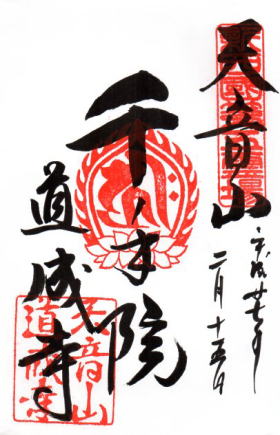 天音山
平成廿七年
二月十五日
千手院
道成寺
天音山
道成寺